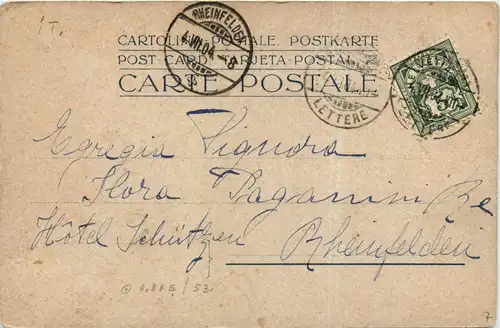 1T.
RHEINFELDEN
4.VII.04.-8
CARTOLINA POSTALE. POSTKARTE
POST CARD. TARJETA POSTAL
CARTE POSTALE
LETTERE
HELVETIA
Egregia Signora
Flora Paganini Re
Hôtel Schützen Rheinfelden
/53.
7